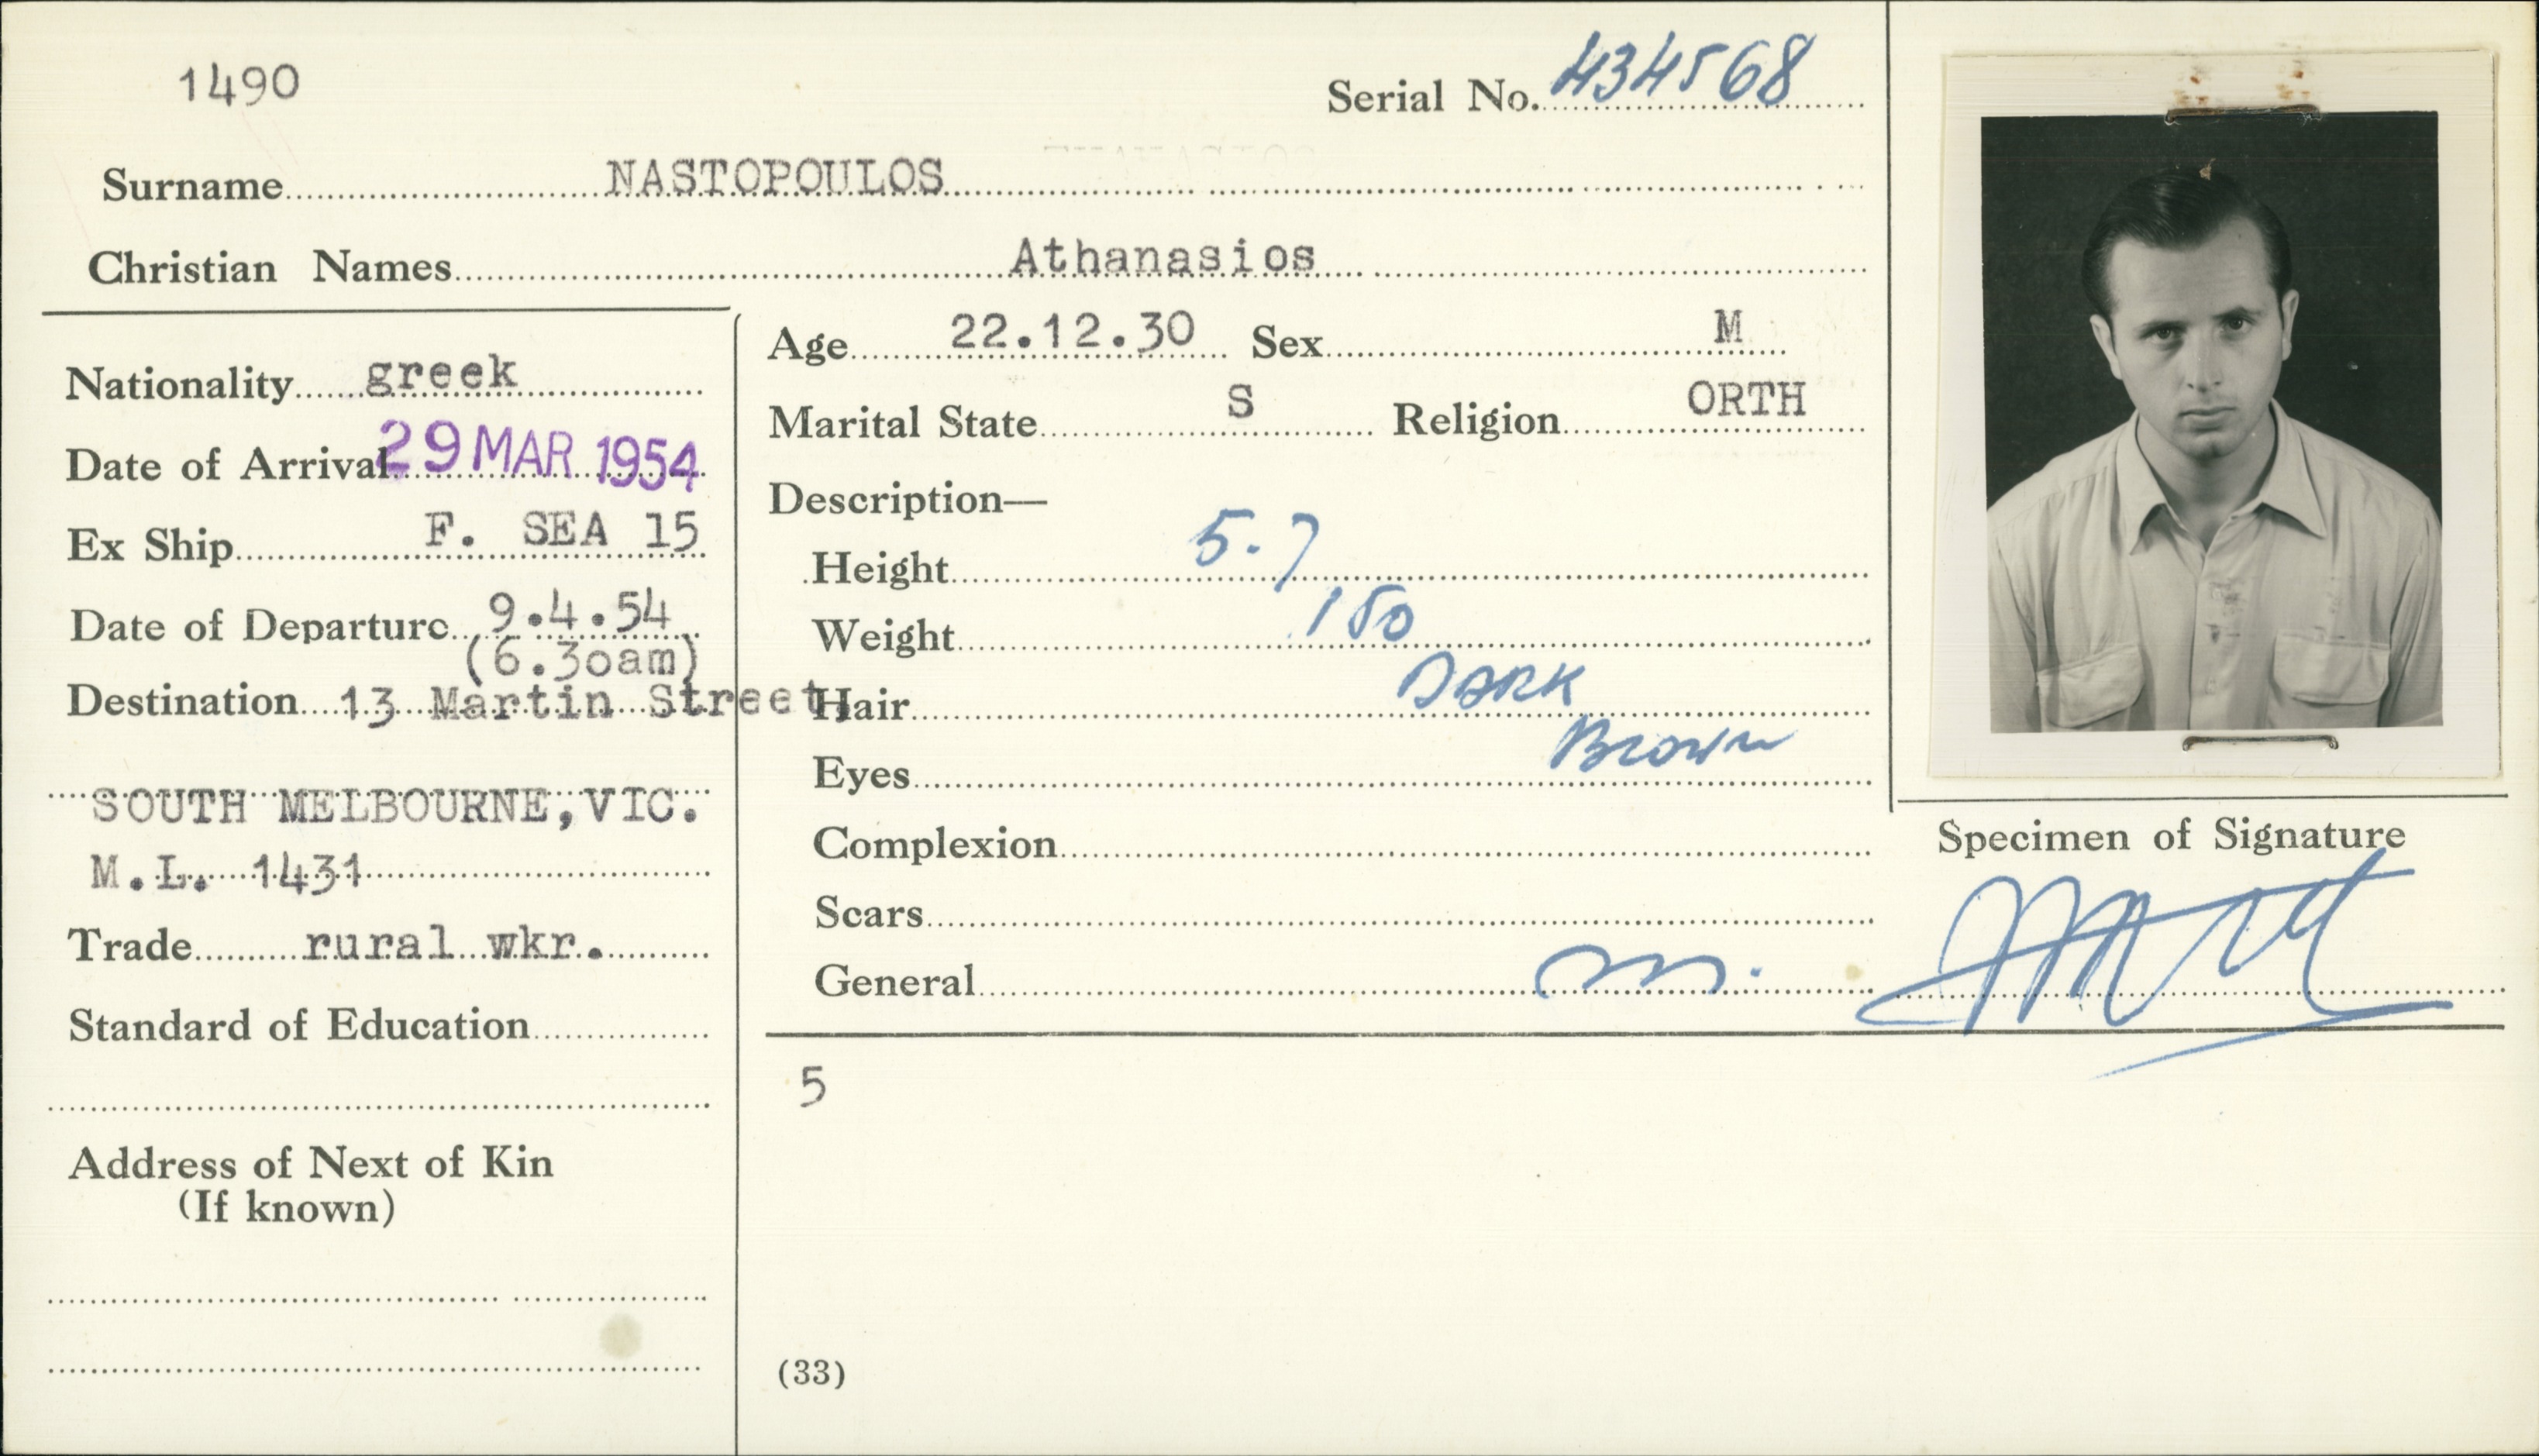 1490
Serial No. 434568
Surname NASTOPOULOS
Christian Names Athanasios
Nationality greek
Date of Arrival 29 MAR 1954
Ex Ship F. SEA 15
Date of Departure 9.4.54
(6.30am)
Destination 13 Martin Street,
SOUTH MELBOURNE, VIC.
M.L. 1431
Trade rural wkr.
Standard of Education
Address of Next of Kin
(If known)
Age 22.12.30 Sex M
Marital State S Religion ORTH
Description—
Height 5.7
Weight 150
Hair DARK
Eyes Brown
Complexion
Scars
General
5
(33)
Specimen of Signature